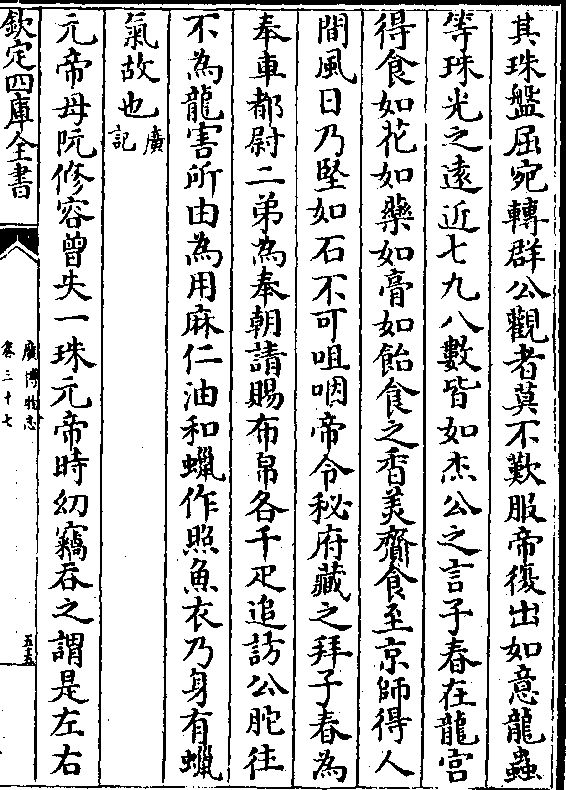 其珠盤屈宛轉群公觀者莫不歎服帝復出如意龍蟲
等珠光之遠近七九八數皆如杰公之言子春在龍宮
得食如花如藥如膏如飴食之香美齎食至京師得人
間風日乃堅如石不可咀咽帝令秘府藏之拜子春為
奉車都尉二弟為奉朝請賜布帛各千疋追訪公𦙀往
不為龍害所由為用麻仁油和蠟作照魚衣乃身有蠟
氣故也廣記
元帝母阮修容曾失一珠元帝時幼竊吞之謂是左右
欽定四庫全書
廣博物志
卷三十七
五五